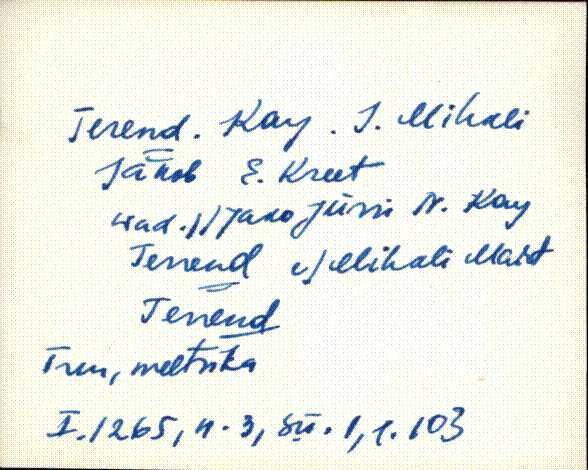 Terend. Kay. I. Mihali
Jakob E. Kreet
wad. // Jako Jürri N. Kay
Terrend Mihali Mart
Terrend
Trm, meetrika
I.1265, n. 3, sü. 1, l. 103